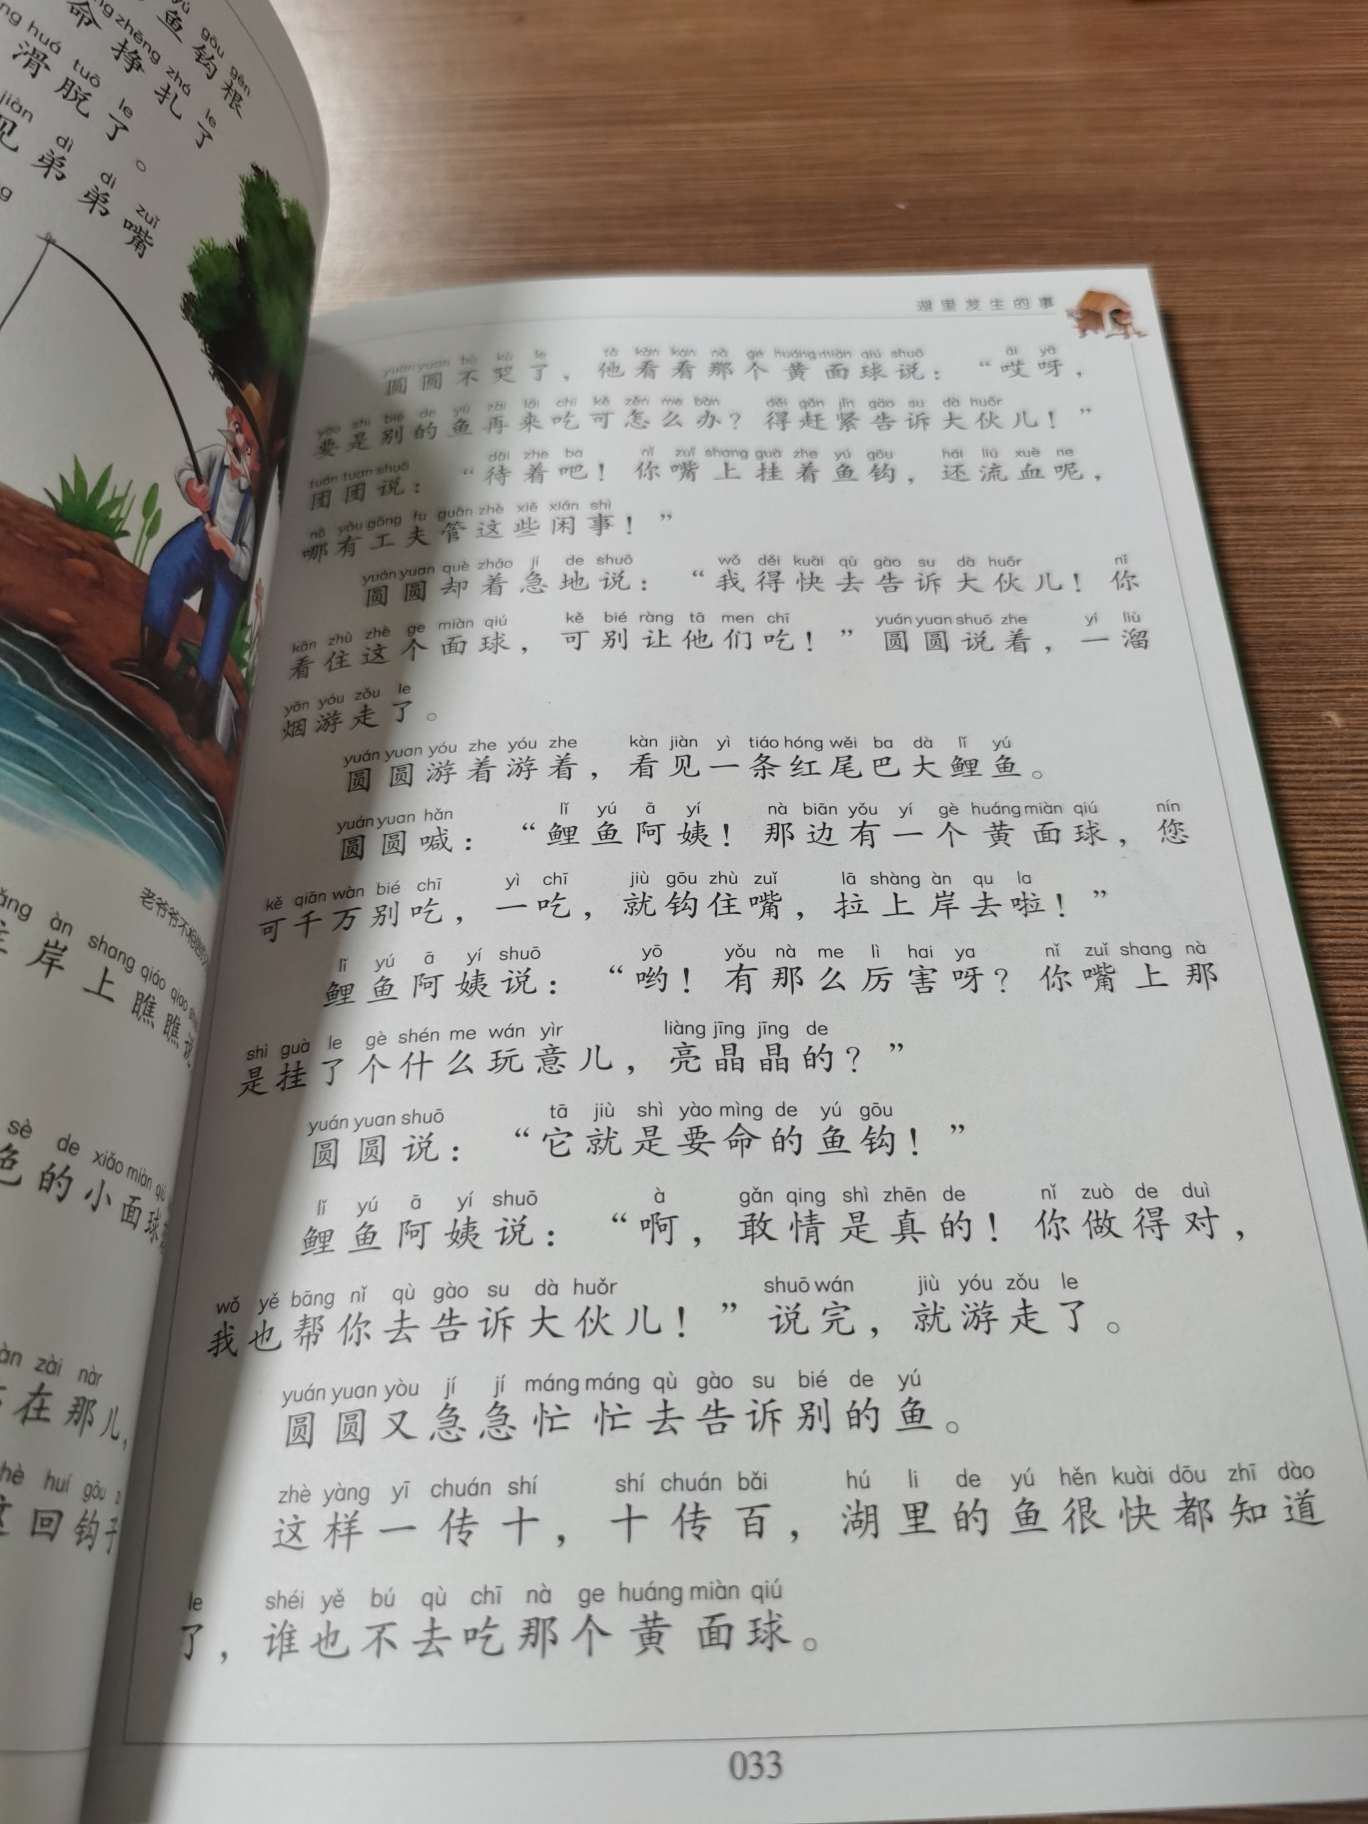 yú gōu gēn
鱼钩根
命挣扎了
huá tuō le
滑脱了。
jiàn dì di zuǐ
见弟弟嘴
老爷爷不相
àn shang qiáo qiao
岸上瞧瞧
sè de xiǎo miàn qiú
色的小面球
zài nàr
在那儿，
huí gōu
这回钩子
湖里发生的事
yuán yuan bù kū le tā kàn kan nà ge huáng miàn qiú shuō āi yā
圆圆不哭了，他看看那个黄面球说：“哎呀，
yào shi bié de yú zài lái chī kě zěn me bàn děi gǎn jǐn gào su dà huǒr
要是别的鱼再来吃可怎么办？得赶紧告诉大伙儿！”
tuán tuan shuō dāi zhe ba nǐ zuǐ shang guà zhe yú gōu hái liú xuè ne
团团说：“待着吧！你嘴上挂着鱼钩，还流血呢，
nǎ yǒu gōng fu guǎn zhè xiē xián shì
哪有工夫管这些闲事！”
yuán yuan què zháo jí de shuō wǒ děi kuài qù gào su dà huǒr nǐ
圆圆却着急地说：“我得快去告诉大伙儿！你
kān zhù zhè ge miàn qiú kě bié ràng tā men chī yuán yuan shuō zhe yí liù
看住这个面球，可别让他们吃！”圆圆说着，一溜
yān yóu zǒu le
烟游走了。
yuán yuan yóu zhe yóu zhe kàn jiàn yì tiáo hóng wěi ba dà lǐ yú
圆圆游着游着，看见一条红尾巴大鲤鱼。
yuán yuan hǎn lǐ yú ā yí nà biān yǒu yí gè huáng miàn qiú nín
圆圆喊：“鲤鱼阿姨！那边有一个黄面球，您
kě qiān wàn bié chī yì chī jiù gōu zhù zuǐ lā shàng àn qu la
可千万别吃，一吃，就钩住嘴，拉上岸去啦！”
lǐ yú ā yí shuō yō yǒu nà me lì hai ya nǐ zuǐ shang nà
鲤鱼阿姨说：“哟！有那么厉害呀？你嘴上那
shì guà le gè shén me wán yìr liàng jīng jīng de
是挂了个什么玩意儿，亮晶晶的？”
yuán yuan shuō tā jiù shì yào mìng de yú gōu
圆圆说：“它就是要命的鱼钩！”
lǐ yú ā yí shuō à gǎn qing shì zhēn de nǐ zuò de duì
鲤鱼阿姨说：“啊，敢情是真的！你做得对，
wǒ yě bāng nǐ qù gào su dà huǒr shuō wán jiù yóu zǒu le
我也帮你去告诉大伙儿！”说完，就游走了。
yuán yuan yòu jí jí máng máng qù gào su bié de yú
圆圆又急急忙忙去告诉别的鱼。
zhè yàng yī chuán shí shí chuán bǎi hú li de yú hěn kuài dōu zhī dào
这样一传十，十传百，湖里的鱼很快都知道
le shéi yě bú qù chī nà ge huáng miàn qiú
了，谁也不去吃那个黄面球。
033